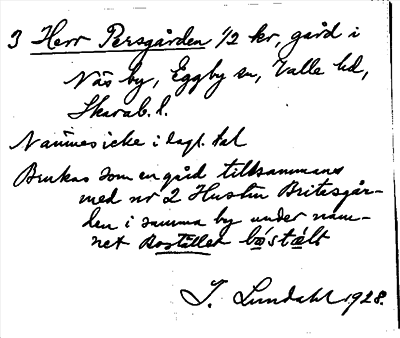 3 Herr Persgården 1/2 kr, gård i
Näs by, Eggby sn, Valle hd,
Skarab. l.
Namnes icke i dagl. tal
Brukas som en gård tillsammans
med nr 2 Hustru Britesgår-
den i samma by under nam-
net Bostället bǿstælt
I. Lundahl 1928.